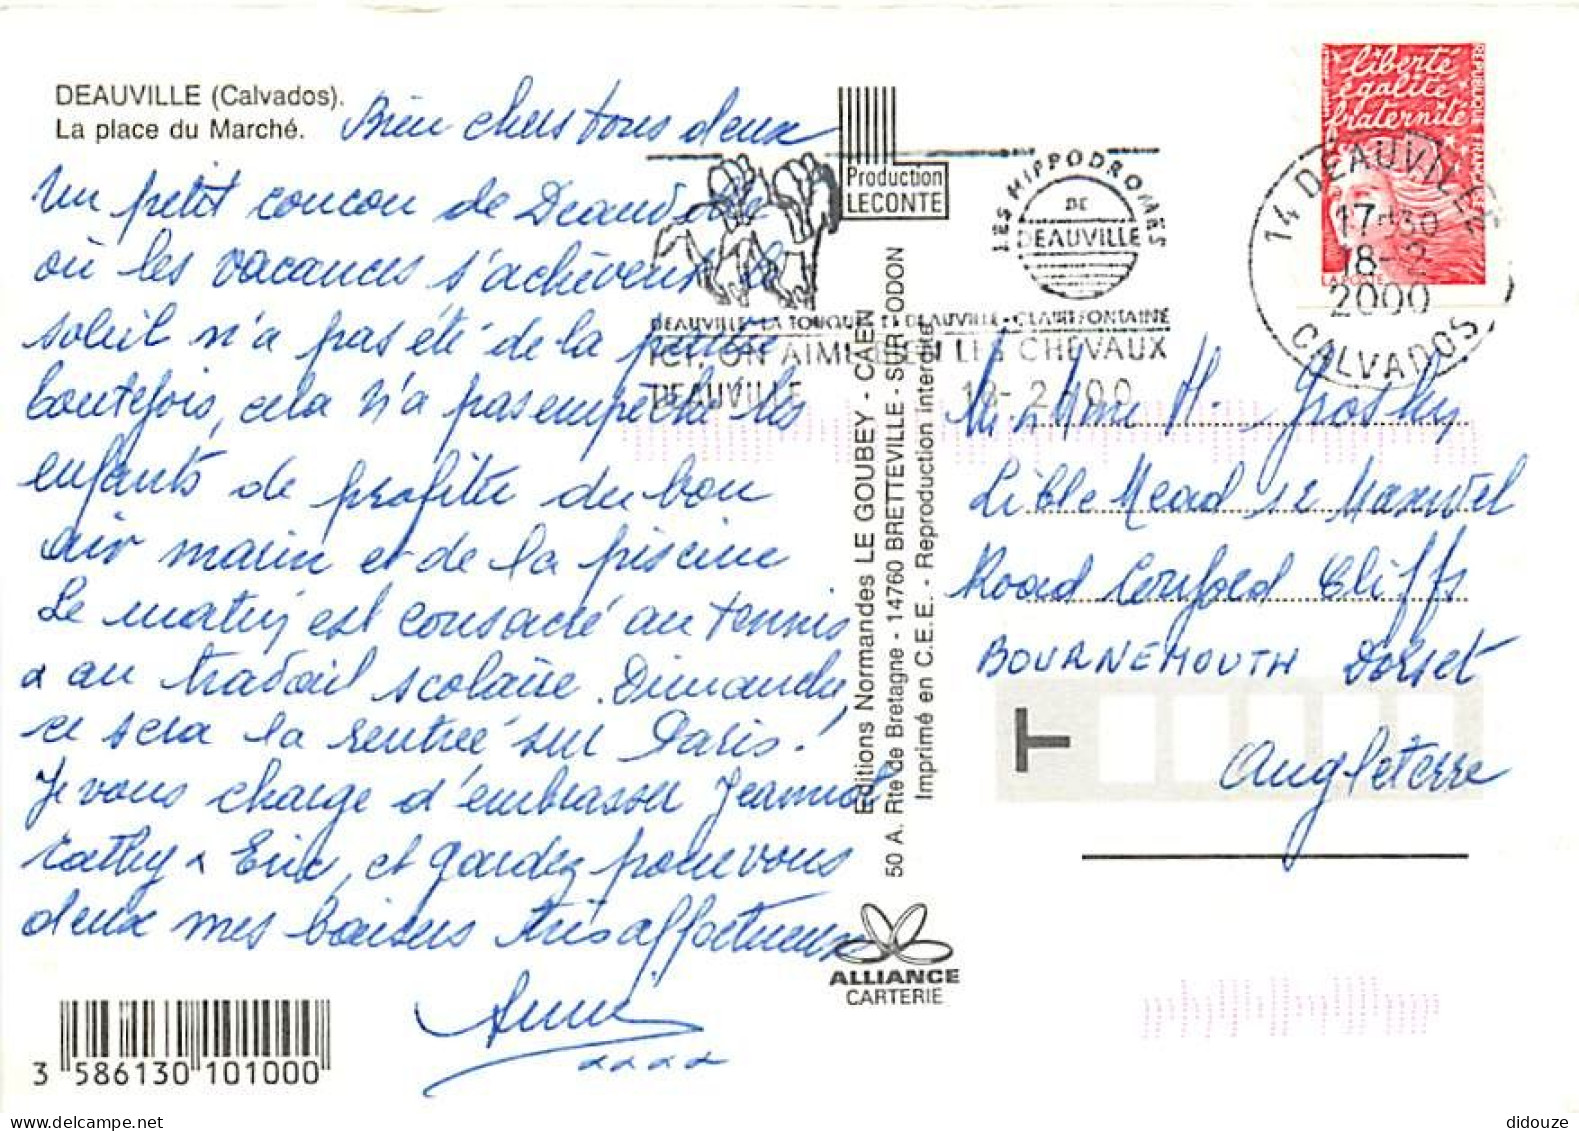 DEAUVILLE (Calvados).
La place du Marché.
Bien chers tous deux
Un petit coucou de Deauville
où les vacances s'achèvent. Le
soleil n'a pas été de la partie
toutefois, cela n'a pas empêché les
enfants de profiter du bon
air marin et de la piscine
Le matin est consacré au tennis
& au travail scolaire. Dimanche,
ce sera la rentrée sur Paris!
Je vous charge d'embrasser Jeannot
Cathy & Eric, et gardez pour vous
deux mes baisers très affectueux
Annie
3 586130 101000
Production
LECONTE
LES HIPPODROMES
DE
DEAUVILLE
DEAUVILLE-LA TOUQUES ET DEAUVILLE-CLAIREFONTAINE
ICI, ON AIME BIEN LES CHEVAUX
DEAUVILLE 18-2-00
Editions Normandes LE GOUBEY - CAEN
50 A. Rte de Bretagne - 14760 BRETTEVILLE - SUR - ODON
Imprimé en C.E.E. - Reproduction interdite
ALLIANCE
CARTERIE
liberté
égalité
fraternité
REPUBLIQUE FRANÇAISE
LA POSTE
14 DEAUVILLE
17-30
18-2
2000
CALVADOS
Mr & Mme H.
Mead Maxwel
Road Cliffs
BOURNEMOUTH Dorset
Angleterre
didouze